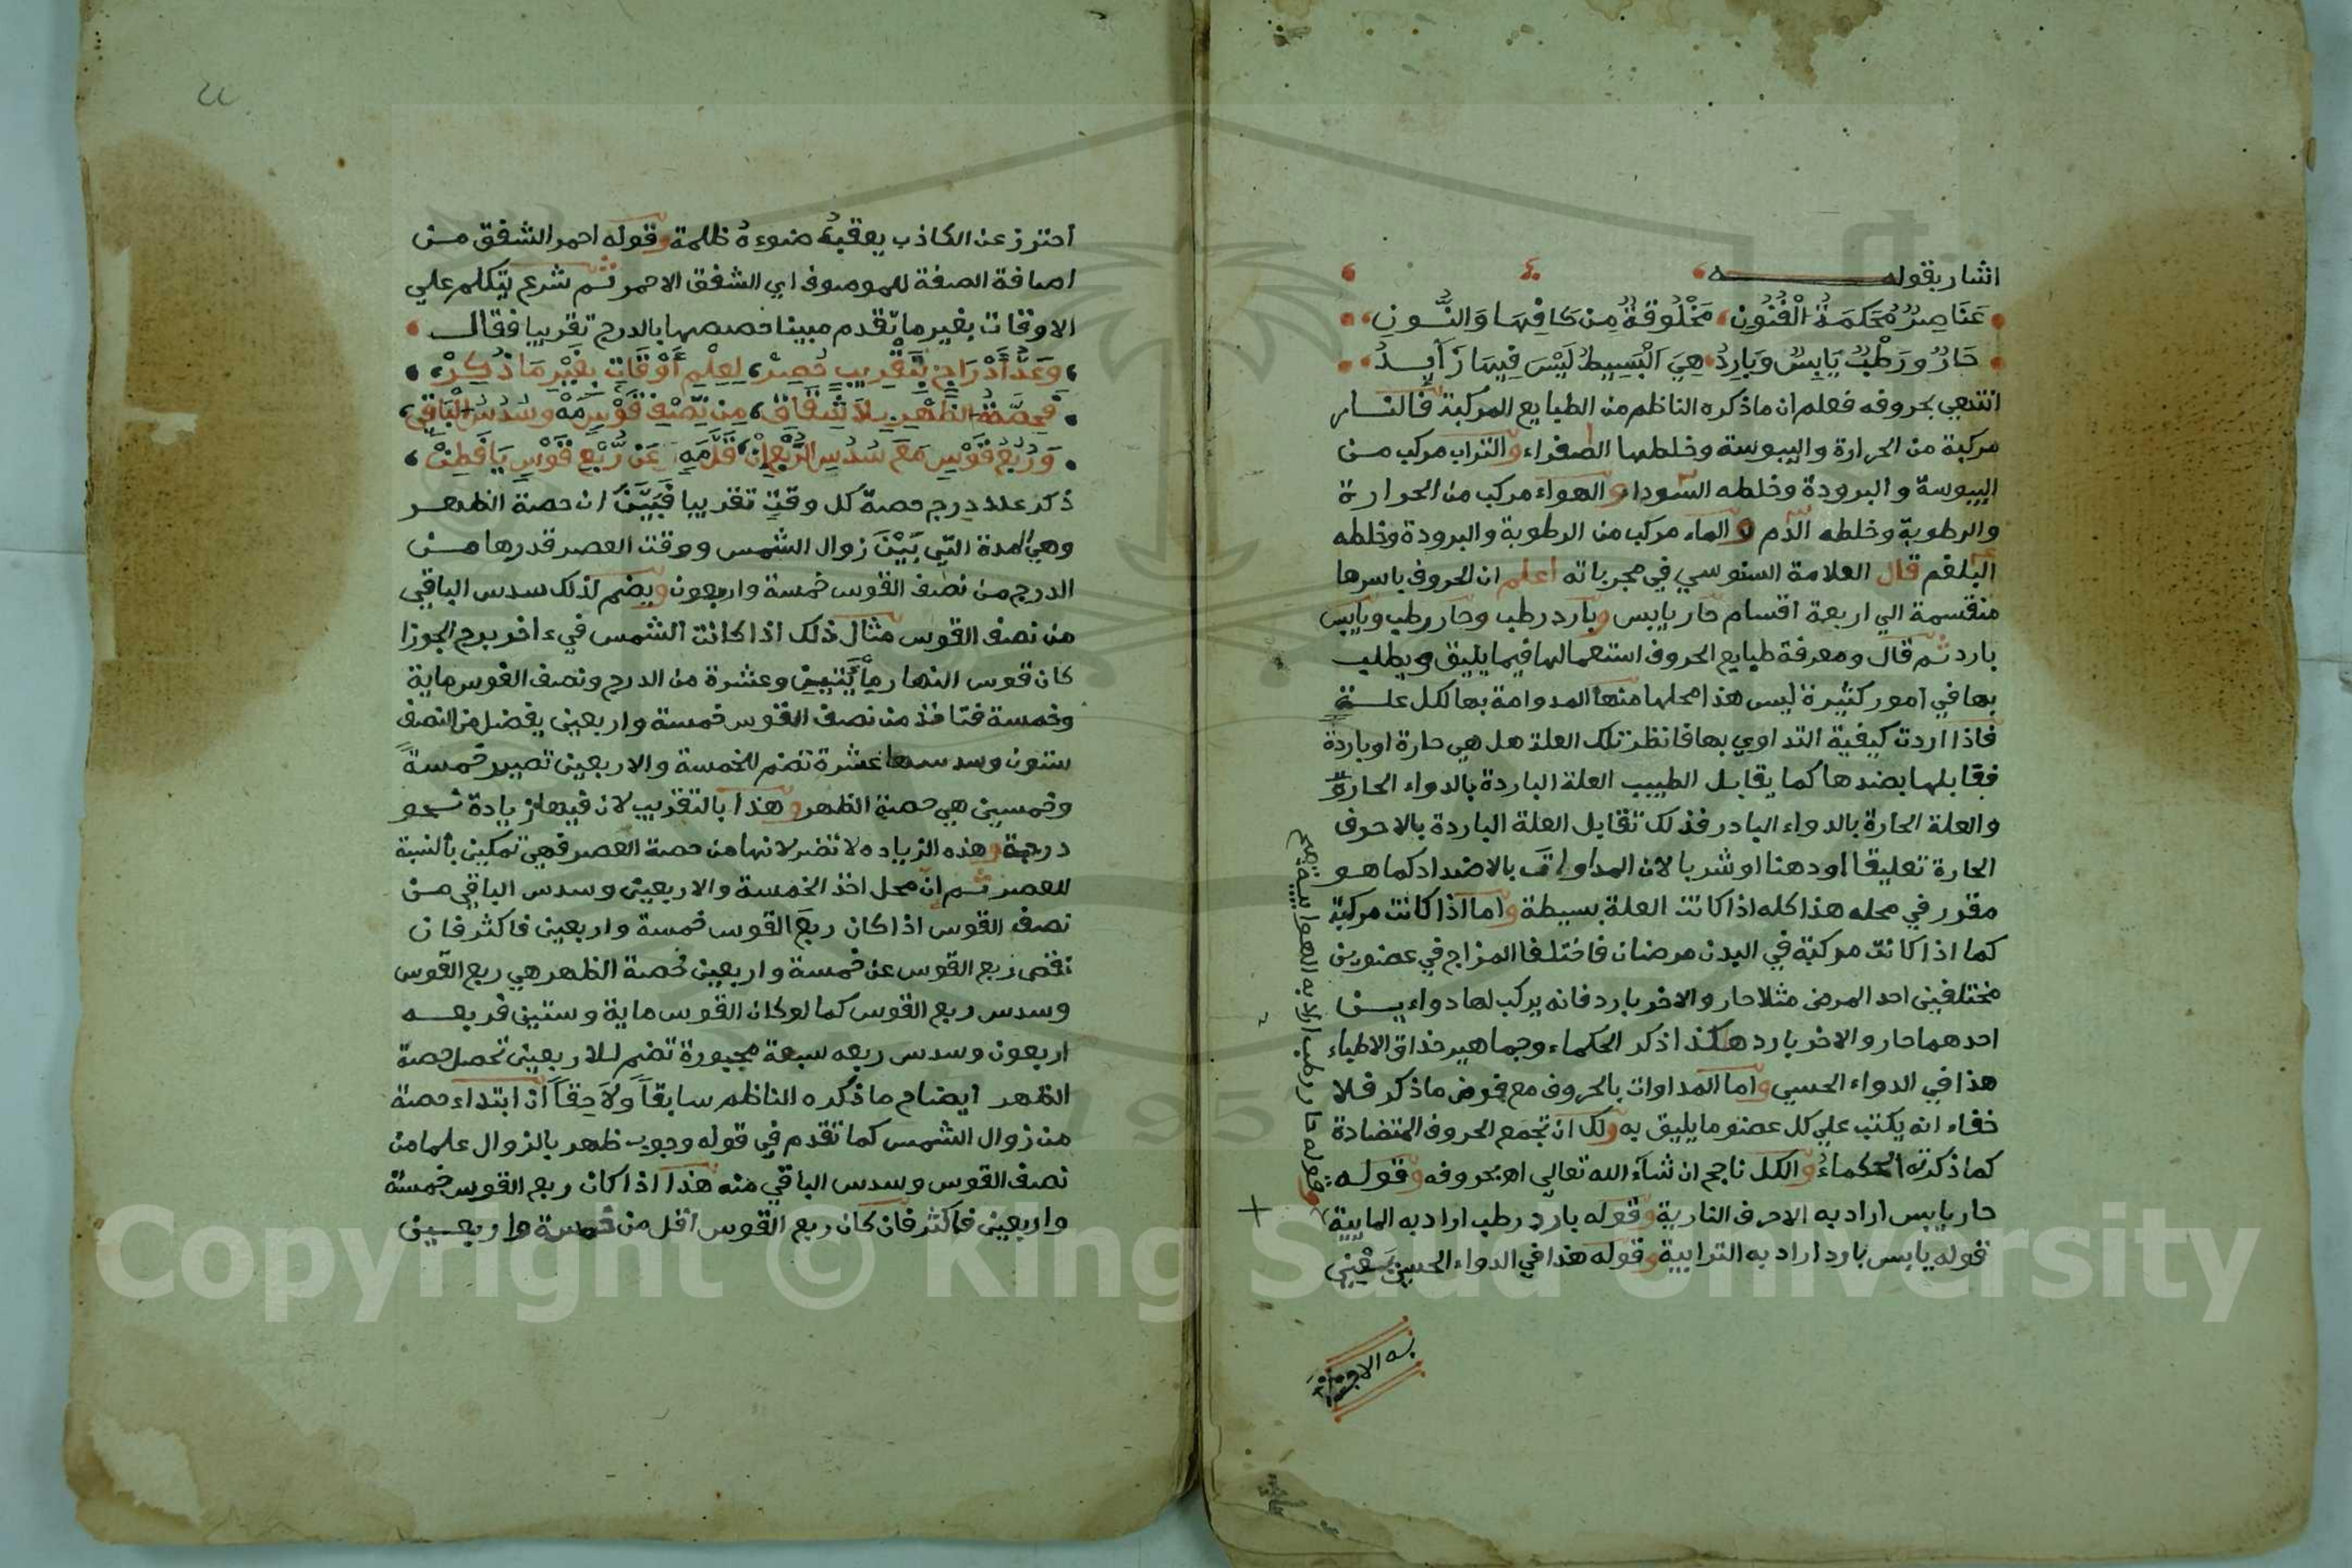 اشار بقوله
عَنَاصِرٌ مُحَكمَةُ الْفُنُونِ، مَخْلُوقَةٌ مِنْ كَافِهَا وَالنُّونِ،
حَارٌ ورَطْبٌ يَابِسٌ وَبَارِدُ هِيَ الْبَسِيطُ لَيْسَ فِيهَا زَايِدُ
انتهي بحروفه فعلم ان ما ذكره الناظم من الطبايع المركبة فالنار
مركبة من الحرارة واليبوسة وخلطها الصفراء والتراب مركب من
اليبوسة والبرودة وخلطه السوداء والهواء مركب من الحرارة
والرطوبة وخلطه الدم والماء مركب من الرطوبة والبرودة وخلطه
البلغم قال العلامة السنوسي في مجرباته اعلم ان الحروف باسرها
منقسمة الي اربعة اقسام حار يابس وبارد رطب وحار رطب ويابس
بارد ثم قال ومعرفة طبايع الحروف استعمالها فيما يليق ويطلب
بها في امور كثيرة ليس هذا محلها منها المداومة بها لكل علة
فاذا اردت كيفية التداوي بها فانظر تلك العلة هل هي حارة او باردة
فقابلها بضدها كما يقابل الطبيب العلة الباردة بالدواء الحارة
والعلة الحارة بالدواء البادر فذلك تقابل العلة الباردة بالاحرف
الحارة تعليقا او دهنا او شربا لان المداوات بالاضداد كما هو
مقرر في محله هذا كله اذا كانت العلة بسيطة واما اذا كانت مركبة
كما اذا كانت مركبة في البدن مرضان فاختلفا المزاج في عضوين
مختلفين احد المرض مثلا حار والاخر بارد فانه يركب لها دواءين
احدهما حار والاخر بارد هكذا ذكر الحكماء وجماهير حذاق الاطباء
هذا في الدواء الحسي واما المداوات بالحروف مع فرض ما ذكر فلا
خفاء انه يكتب علي كل عضو ما يليق به ولك ان تجمع الحروف المتضادة
كما ذكرته الحكماء والكل ناجح ان شآء الله تعالي اهـ بحروفه وقوله
حار يابس اراد به الاحرف النارية وقوله بارد رطب اراد به المايية
قوله يابس بارد اراد به الترابية وقوله هذا في الدواء الحسي يعني
وقوله حار رطب اراد به الهوايية صح
به الا
احترز عن الكاذب يعقبهُ ضوءهُ ظلمة وقوله احمر الشفق من
اضافة الصفة للموصوف اي الشفق الاحمر ثم شرع يتكلم علي
الاوقات بغير ما تقدم مبينا حصصها بالدرج تقريبا فقال
وَعَدُّ أَدْرَاجٍ بِتَقْرِيبٍ حُصِرْ، لِعِلْمِ أَوْقَاتٍ بِغَيْرِ مَا ذُكِرْ،
فَحِصَّةُ الظُّهْرِ بِلاَ شِقَاقِ، مِنْ نِّصْفِ قَوْسٍ مَهْ وسُدُسُ الْبَاقِي،
وَرُبْعُ قَوْسٍ مَعَ سُدُسِ الرُّبْعِ إنْ، قَلَّ مَهٍ عَنْ رُبْعِ قَوْسٍ يَافَطِنْ،
ذكر عدد درج حصة كل وقتٍ تقريبا فَبَيَّنَ ان حصة الظهر
وهي المدة التي بَيْنَ زوال الشمس ووقت العصر قدرها من
الدرج من نصف القوس خمسة واربعون ويضم لذلك سدس الباقي
من نصف القوس مثال ذلك اذا كانت الشمس في ءاخر برج الجوزا
كان قوس النهار مِأَيَّتيين وعشرة من الدرج ونصف القوس ماية
وخمسة فتاخذ من نصف القوس خمسة واربعين يفضل من النصف
ستون وسدسها عشرة تضم للخمسة والاربعين تصير خمسةً
وخمسين هي حصة الظهر وهذا بالتقريب لان فيها زيادة نحو
درجة وهذه الزياده لا تضر لانها من حصة العصر فهي تمكين بالنسبة
للعصر ثم ان محل اخذ الخمسة والاربعين وسدس الباقي من
نصف القوس اذا كان ربع القوس خمسة واربعين فاكثر فان
نقص ربع القوس عن خمسة واربعين فحصة الظهر هي ربع القوس
وسدس ربع القوس كما لو كان القوس ماية وستين فربعه
اربعون وسدس ربعه سبعة مجبورة تضم للاربعين تحصل حصة
الظهر ايضاح ما ذكره الناظم سابقاً وَلاَحِقاً أن ابتداء حصة
من زوال الشمس كما تقدم في قوله وجوب ظهر بالزوال علما من
نصف القوس وسدس الباقي منه هذا اذا كان ربع القوس خمسة
واربعين فاكثر فان كان ربع القوس اقل من خمسة واربعين
Copyright © King Saud University